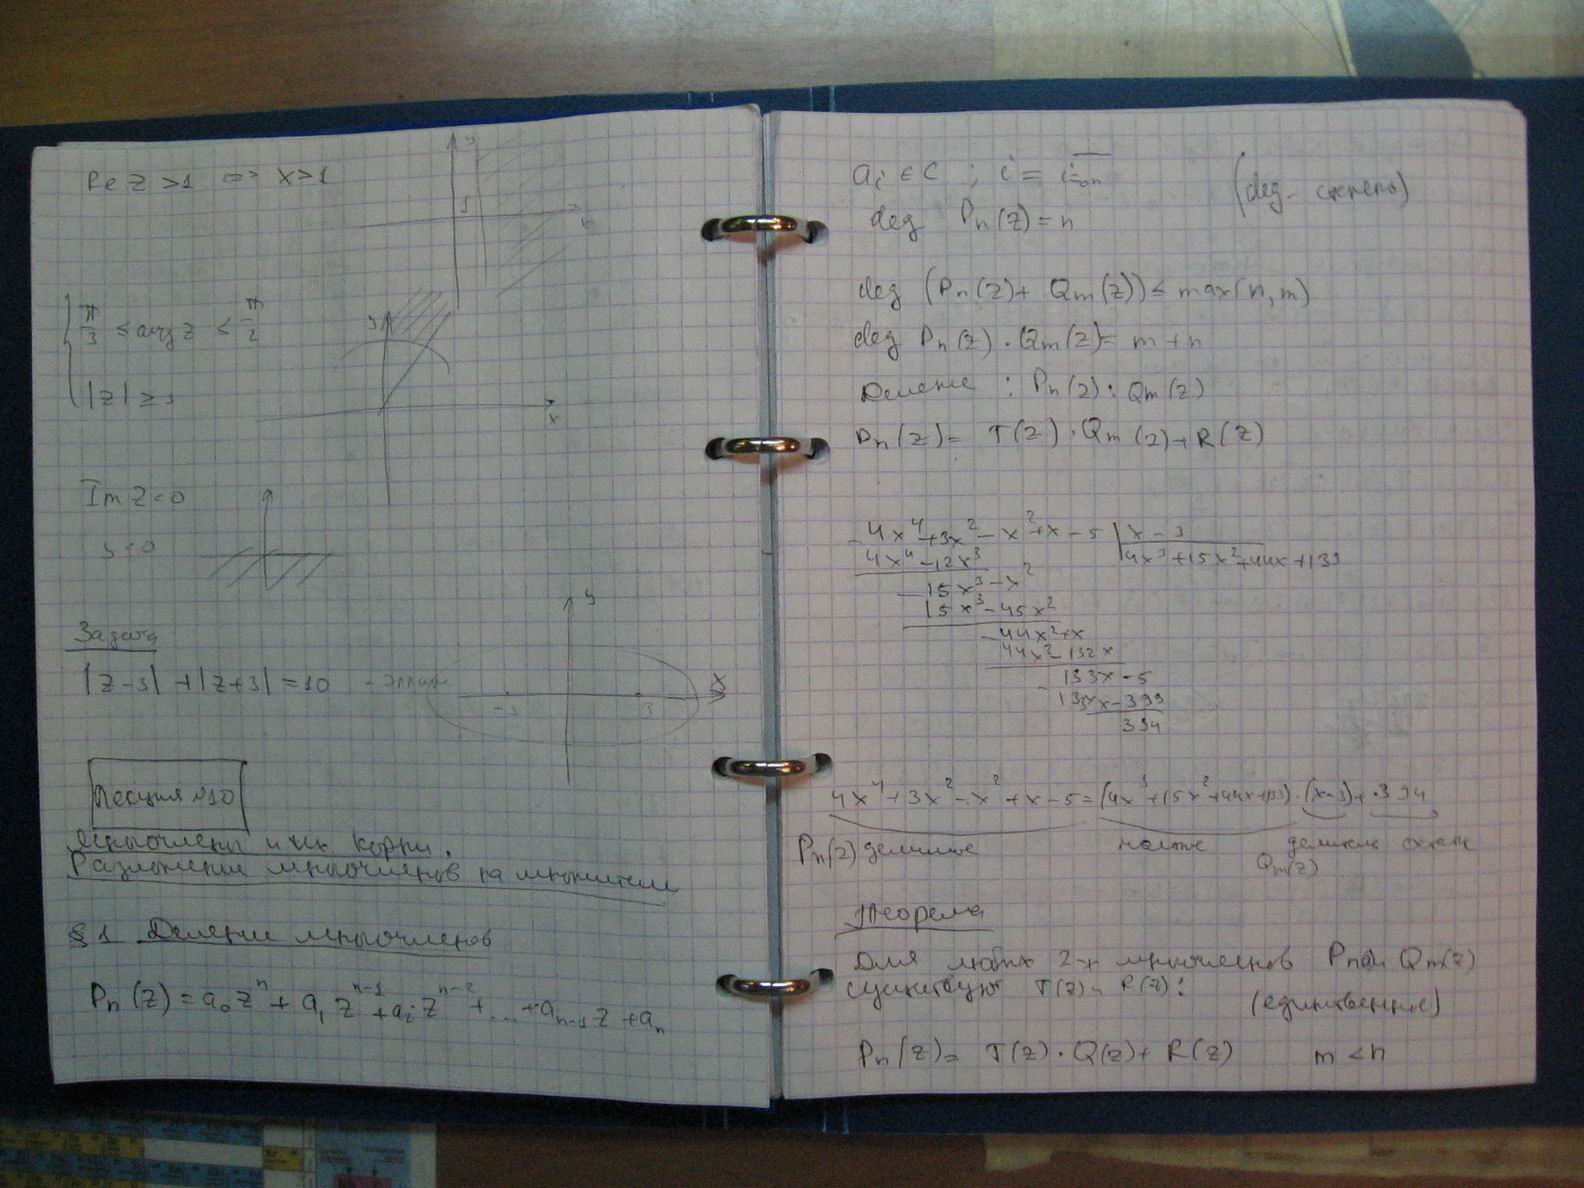 Re z > 1 <=> x > 1
y
1
x
π/3 ≤ arg z < π/2
|z| ≥ 1
y
x
Im z < 0
y < 0
Задача
|z-3| + |z+3| = 10 - Эллипс
y
x
-3 3
Лекция №10
Многочлены и их корни.
Разложение многочленов на множители
§ 1 Деление многочленов
Pn(z) = a₀zⁿ + a₁zⁿ⁻¹ + a₂zⁿ⁻² + ... + aₙ₋₁z + aₙ
ai ∈ C ; i = (deg - степень)
deg Pn(z) = n
deg (Pn(z) + Qm(z)) ≤ max(n, m)
deg Pn(z) · Qm(z) = m + n
Деление : Pn(z) : Qm(z)
Pn(z) = T(z) · Qm(z) + R(z)
- 4x⁴ + 3x² - x² + x - 5 | x - 3
4x⁴ - 12x³ | 4x³ + 15x² + 44x + 133
- 15x³ - x²
15x³ - 45x²
- 44x² + x
44x² - 132x
- 133x - 5
133x - 399
394
4x⁴ + 3x² - x² + x - 5 = (4x³ + 15x² + 44x + 133) · (x - 3) + 394
Pn(z) делимое частное делитель остаток
Qm(z)
Теорема
Для любых 2-х многочленов Pn и Qm(z)
существуют T(z) и R(z):
(единственные)
Pn(z) = T(z) · Q(z) + R(z) m < n